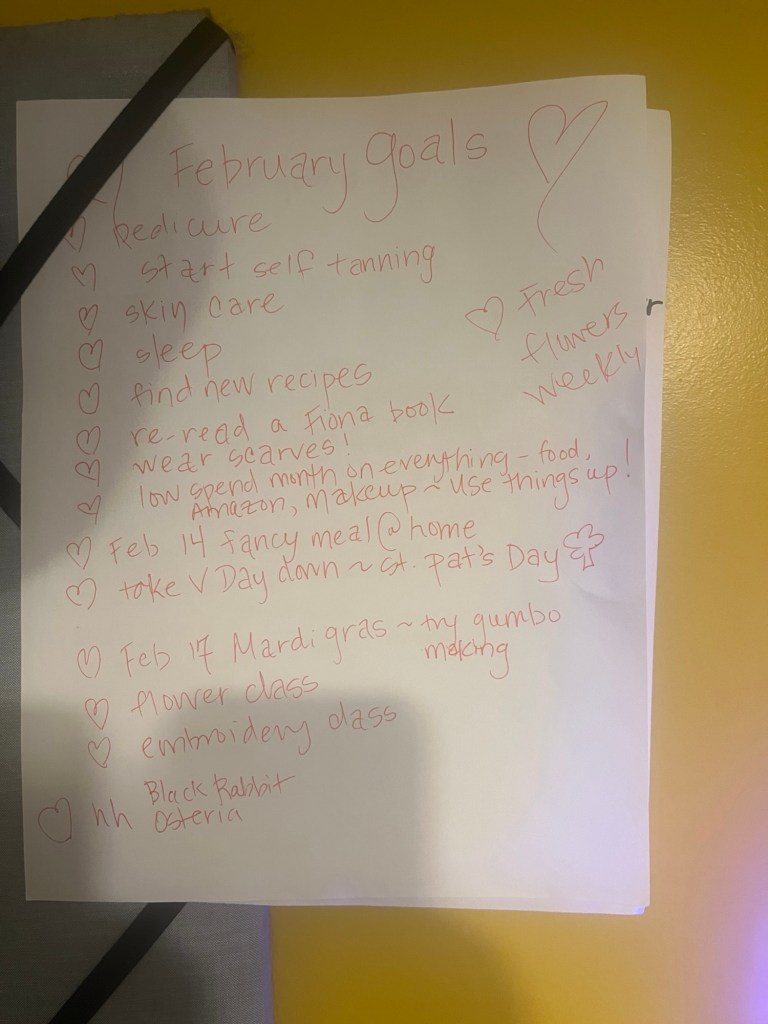 February goals
pedicure
start self tanning
skin care
Fresh
flowers
weekly
sleep
find new recipes
re-read a Fiona book
wear scarves!
low spend month on everything - food,
Amazon, makeup ~ use things up!
Feb 14 fancy meal @ home
take V Day down ~ St. Pat's Day
Feb 17 Mardi gras ~ try gumbo
making
flower class
embroidery class
Black Rabbit
hh Osteria
r